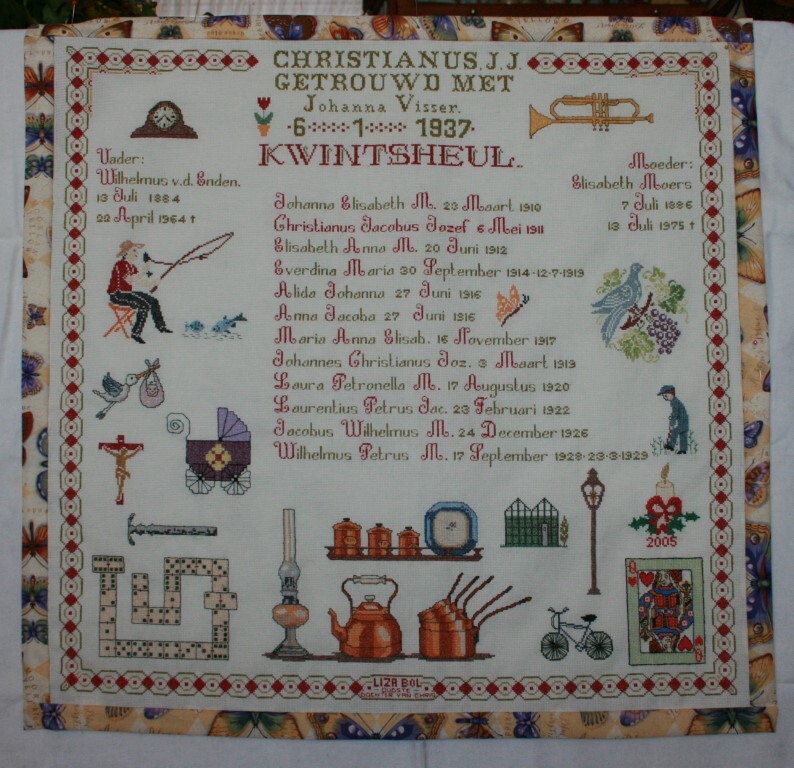 CHRISTIANUS. J.J.
GETROUWD MET
Johanna Visser.
·6·····1·····1937·
KWINTSHEUL..
Vader:
Wilhelmus v.d. Enden.
13 Juli 1884
22 April 1964 †
Moeder:
Elisabeth Moers
7 Juli 1886
13 Juli 1975 †
Johanna Elisabeth M. 23 Maart 1910
Christianus Jacobus Jozef 6 Mei 1911
Elisabeth Anna M. 20 Juni 1912
Everdina Maria 30 September 1914-12-7-1919
Alida Johanna 27 Juni 1916
Anna Jacoba 27 Juni 1916
Maria Anna Elisab. 16 November 1917
Johannes Christianus Joz. 3 Maart 1919
Laura Petronella M. 17 Augustus 1920
Laurentius Petrus Jac. 23 Februari 1922
Jacobus Wilhelmus M. 24 December 1926
Wilhelmus Petrus M. 17 September 1928-23-3-1929
2005
Q
Q
LIZA BOL
- OUDSTE -
DOCHTER VAN CHRIS